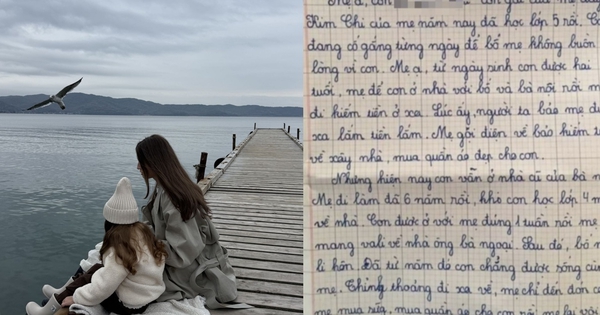 Mẹ ạ, con
Kim Chi của mẹ năm nay đã học lớp 5 rồi. C
đang cố gắng từng ngày để bố mẹ không buồn
lòng vì con. Mẹ ạ, từ ngày sinh con được hai
tuổi, mẹ để con ở nhà với bố và bà nội rồi m
đi kiếm tiền ở xa. Lúc ấy, người ta bảo mẹ đ
xa lắm tiền lắm. Mẹ gọi điện về bảo kiếm t
về xây nhà, mua quần áo đẹp cho con.
Nhưng hiện nay con vẫn ở nhà cũ của bà n
Mẹ đi làm đã 6 năm rồi, khi con học lớp 4 m
về nhà. Con được ở với mẹ đúng 1 tuần rồi mẹ
mang vali về nhà ông bà ngoại. Sau đó, bố m
li hôn. Đã từ năm đó con chẳng được sống cùn
mẹ. Thỉnh thoảng đi xa về, mẹ chỉ đến đón c
mẹ mua sữa, mua quần áo cho con rồi mẹ lại với